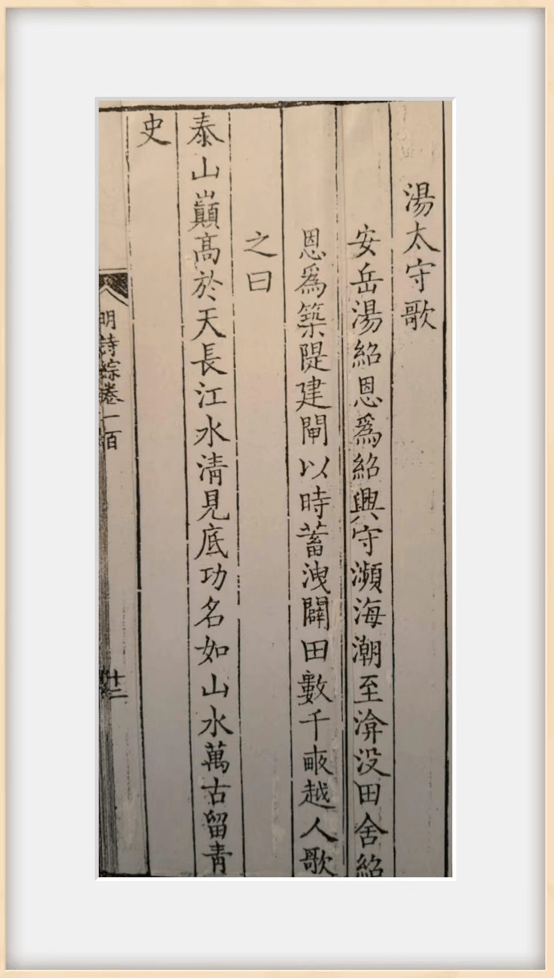 湯太守歌
安岳湯紹恩爲紹興守瀕海潮至渰没田舍紹
恩爲築隄建閘以時蓄洩闢田數千畞越人歌
之曰
泰山巔高於天長江水清見底功名如山水萬古留青
史
明詩綜卷一百
十二